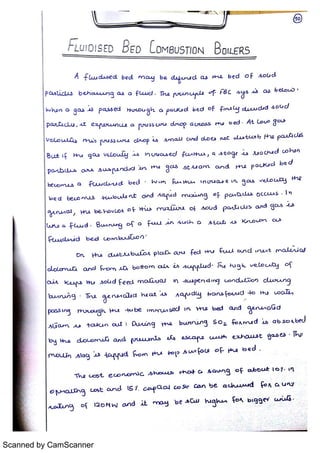 FLUIDISED BED COMBUSTION BOILERS
A fluidised bed may be defined as the bed of solid
particles behaving as a fluid. The principle of FBC sys is as below.
When a gas is passed through a packed bed of finely divided solid
particles, it experiences a pressure drop across the bed. At low gas
velocities this pressure drop is small and does not disturb the particles
But if the gas velocity is increased further, a stage is reached when
particles are suspended in the gas stream and the packed bed
becomes a fluidised bed. With further increase in gas velocity the
bed becomes turbulent and rapid mixing of particles occurs. In
general, the behavior of this mixture of solid particles and gas is
like a fluid. Burning of a fuel in such a state is known as
fluidised bed combustion.
On the distribution plate are fed the fuel and inert material
dolomite and from its bottom air is supplied. The high velocity of
air keeps the solid feed material in suspending condition during
burning. The generated heat is rapidly transfered to the water
passing through the tube immersed in the bed and generated
steam is taken out. During the burning SO2 formed is absorbed
by the dolomite and prevents its escape with exhaust gases. The
molten slag is tapped from the top surface of the bed.
The cost economic shows that a saving of about 10% in
operating cost and 15% capital cost can be achieved for a unit
rating of 120MW and it may be still higher for bigger units.
Scanned by CamScanner